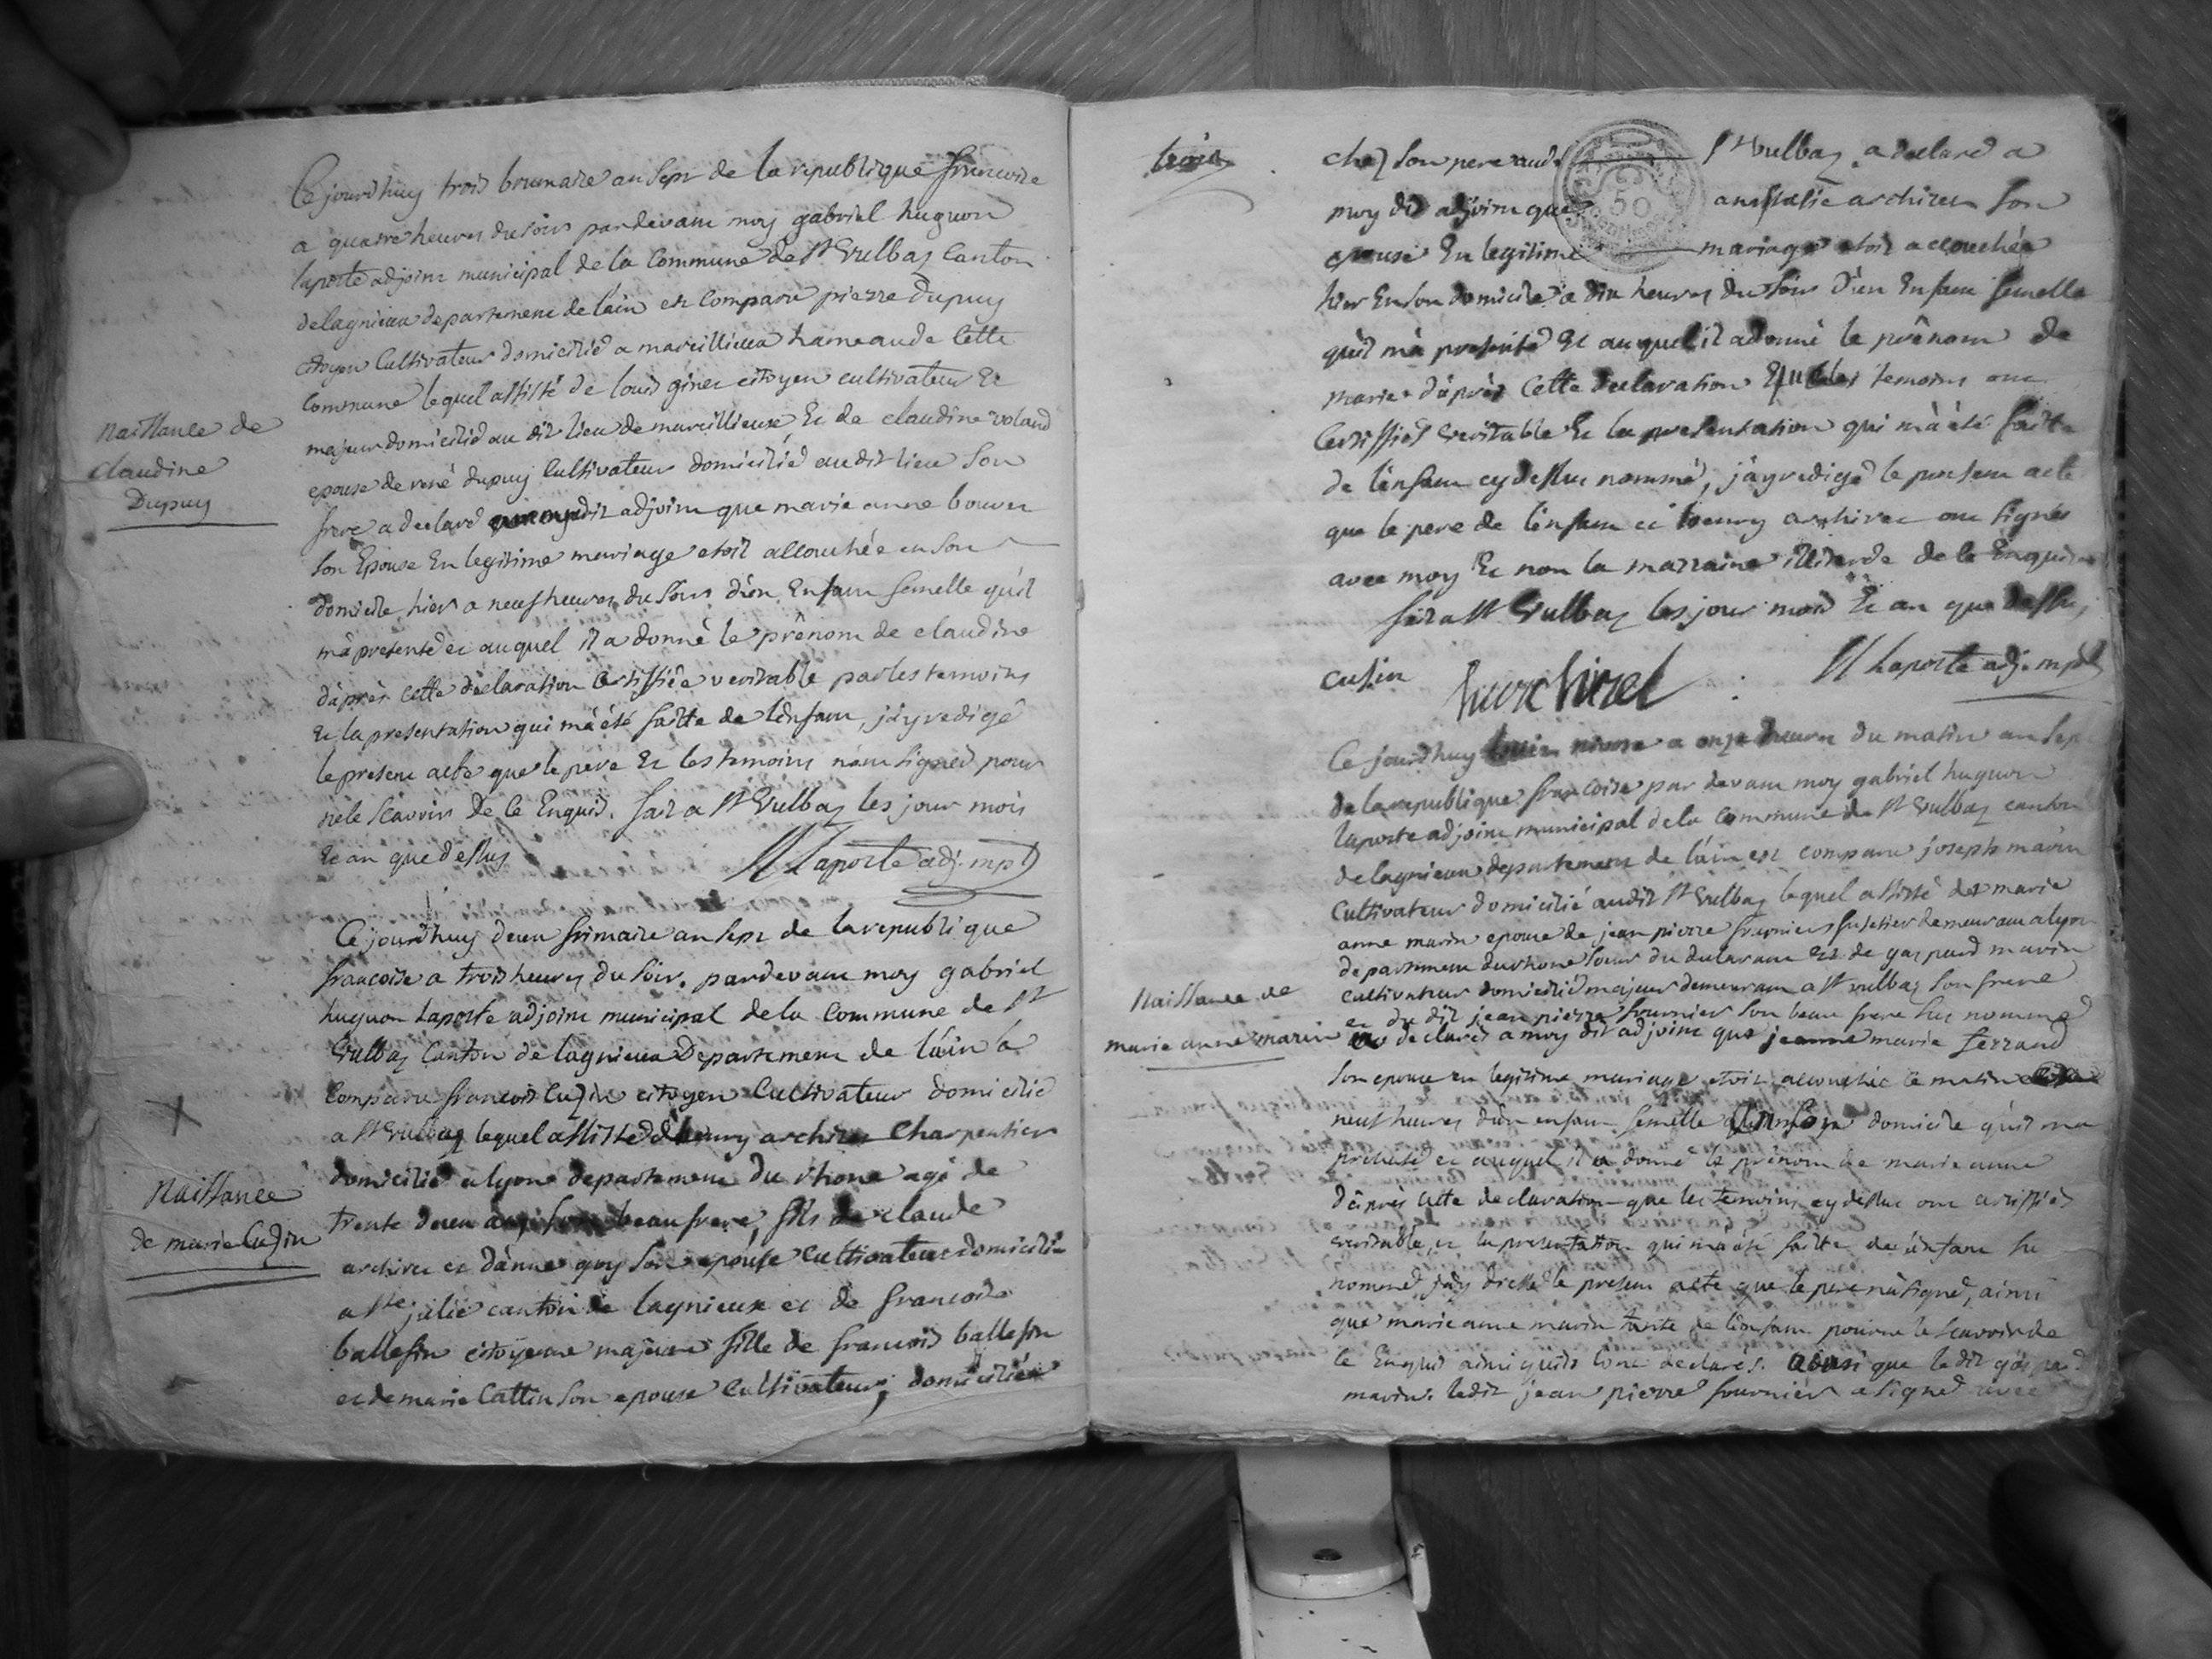 Ce jourd'huy trois brumaire an sept de la republique francoise
a quatre heures du soir pardevant moy gabriel huguon
laporte adjoint municipal de la Commune de St Vulbas Canton
de lagnieux departement de l'ain est Comparu pierre dupuy
citoyen Cultivateur domicilié a marcillieux hameau de Cette
Commune lequel assisté de louis ginet citoyen cultivateur et
majeur domicilié au dit lieu de marcillieux et de claudine voland
epouse de rené dupuy Cultivateur domicilié audit lieu son
frere a declaré a moy dit adjoint que marie anne bouvet
son Epouse En legitime mariage etoit accouchée en son
domicile hier a neuf heures du soir d'un Enfant femelle qu'il
m'a presenté et auquel il a donné le prênom de claudine
d'après cette déclaration Certiffiée veritable par les temoins
et la presentation qui m'a été faitte de l'enfant, j'ay redigé
le present acte que le pere et les temoins n'ont signés pour
ne le scavoir De ce Enquis. fait a St Vulbas les jour mois
et an que dessus
H Laporte adj. mpl
Naissance de
claudine
Dupuy
Ce jourd'huy deux frimaire an sept de la republique
francoise a trois heures du soir. pardevant moy gabriel
huguon Laporte adjoint municipal de la Commune de St
Vulbas Canton de lagnieux Departement de l'ain a
Comparu francois Cuzin citoyen Cultivateur domicilié
a St Vulbas lequel assisté d'henry archiret Charpentier
domicilié a lyon departement du rhone agé de
trente deux ans, son beaufrere, fils de claude
archiret et d'anne guy son epouse Cultivateur domicilié
a Ste julie canton de lagnieux et de francoise
ballefin citoyenne majeure fille de francois ballefin
et de marie Cattin son epouse Cultivateur, domiciliée
X
Naissance
de marie Cuzin
trois
chez son pere audit St Vulbas a declaré a
moy dit adjoint que anastasie archiret son
epouse En legitime mariage etoit accouchée
hier En son domicile a dix heures du soir d'un Enfant femelle
qu'il m'a presenté et auquel il a donné le prênom de
marie. d'après Cette declaration que les temoins ont
Certiffiés veritable et la presentation qui m'a été faitte
de l'enfant cy dessus nommé, j'ay redigé le present acte
que le pere de l'enfant et henry archiret ont signés
avec moy et non la marraine illiterée de ce Enquise
fait a St Vulbas les jour mois et an que dessus
cusin
harchiret
H Laporte adj. mpl
Ce jourd'huy nivose a onze heures du matin an sept
de la republique francoise par devant moy gabriel huguon
laporte adjoint municipal de la Commune de St Vulbas canton
de lagnieux departement de l'ain est comparu joseph marin
Cultivateur domicilié audit St Vulbas lequel assisté de marie
anne marin epouse de jean pierre fournier demeurant a lyon
departement du rhone soeur du declarant et de gaspard marin
Cultivateur domicilié majeur demeurant a St vulbas son frere
et du dit jean pierre fournier son beau frere sus nommé
a declaré a moy dit adjoint que jeanne marie ferrand
son epouse en legitime mariage etoit accouchée ce matin
neuf heures d'un enfant femelle domicile qu'il m'a
presenté et auquel il a donné le prénom de marie anne
D'après cette declaration que les temoins cy dessus ont certiffiés
veritable, et la presentation qui m'a été faitte de l'enfant su
nommé, j'ay dressé le present acte que le pere n'a signé, ainsi
que marie anne marin tante de l'enfant pour ne le scavoir de
ce Enquis ainsi qu'ils l'ont declarés. ainsi que le dit gaspard
marin. le dit jean pierre fournier a signé avec
Naissance de
marie anne marin